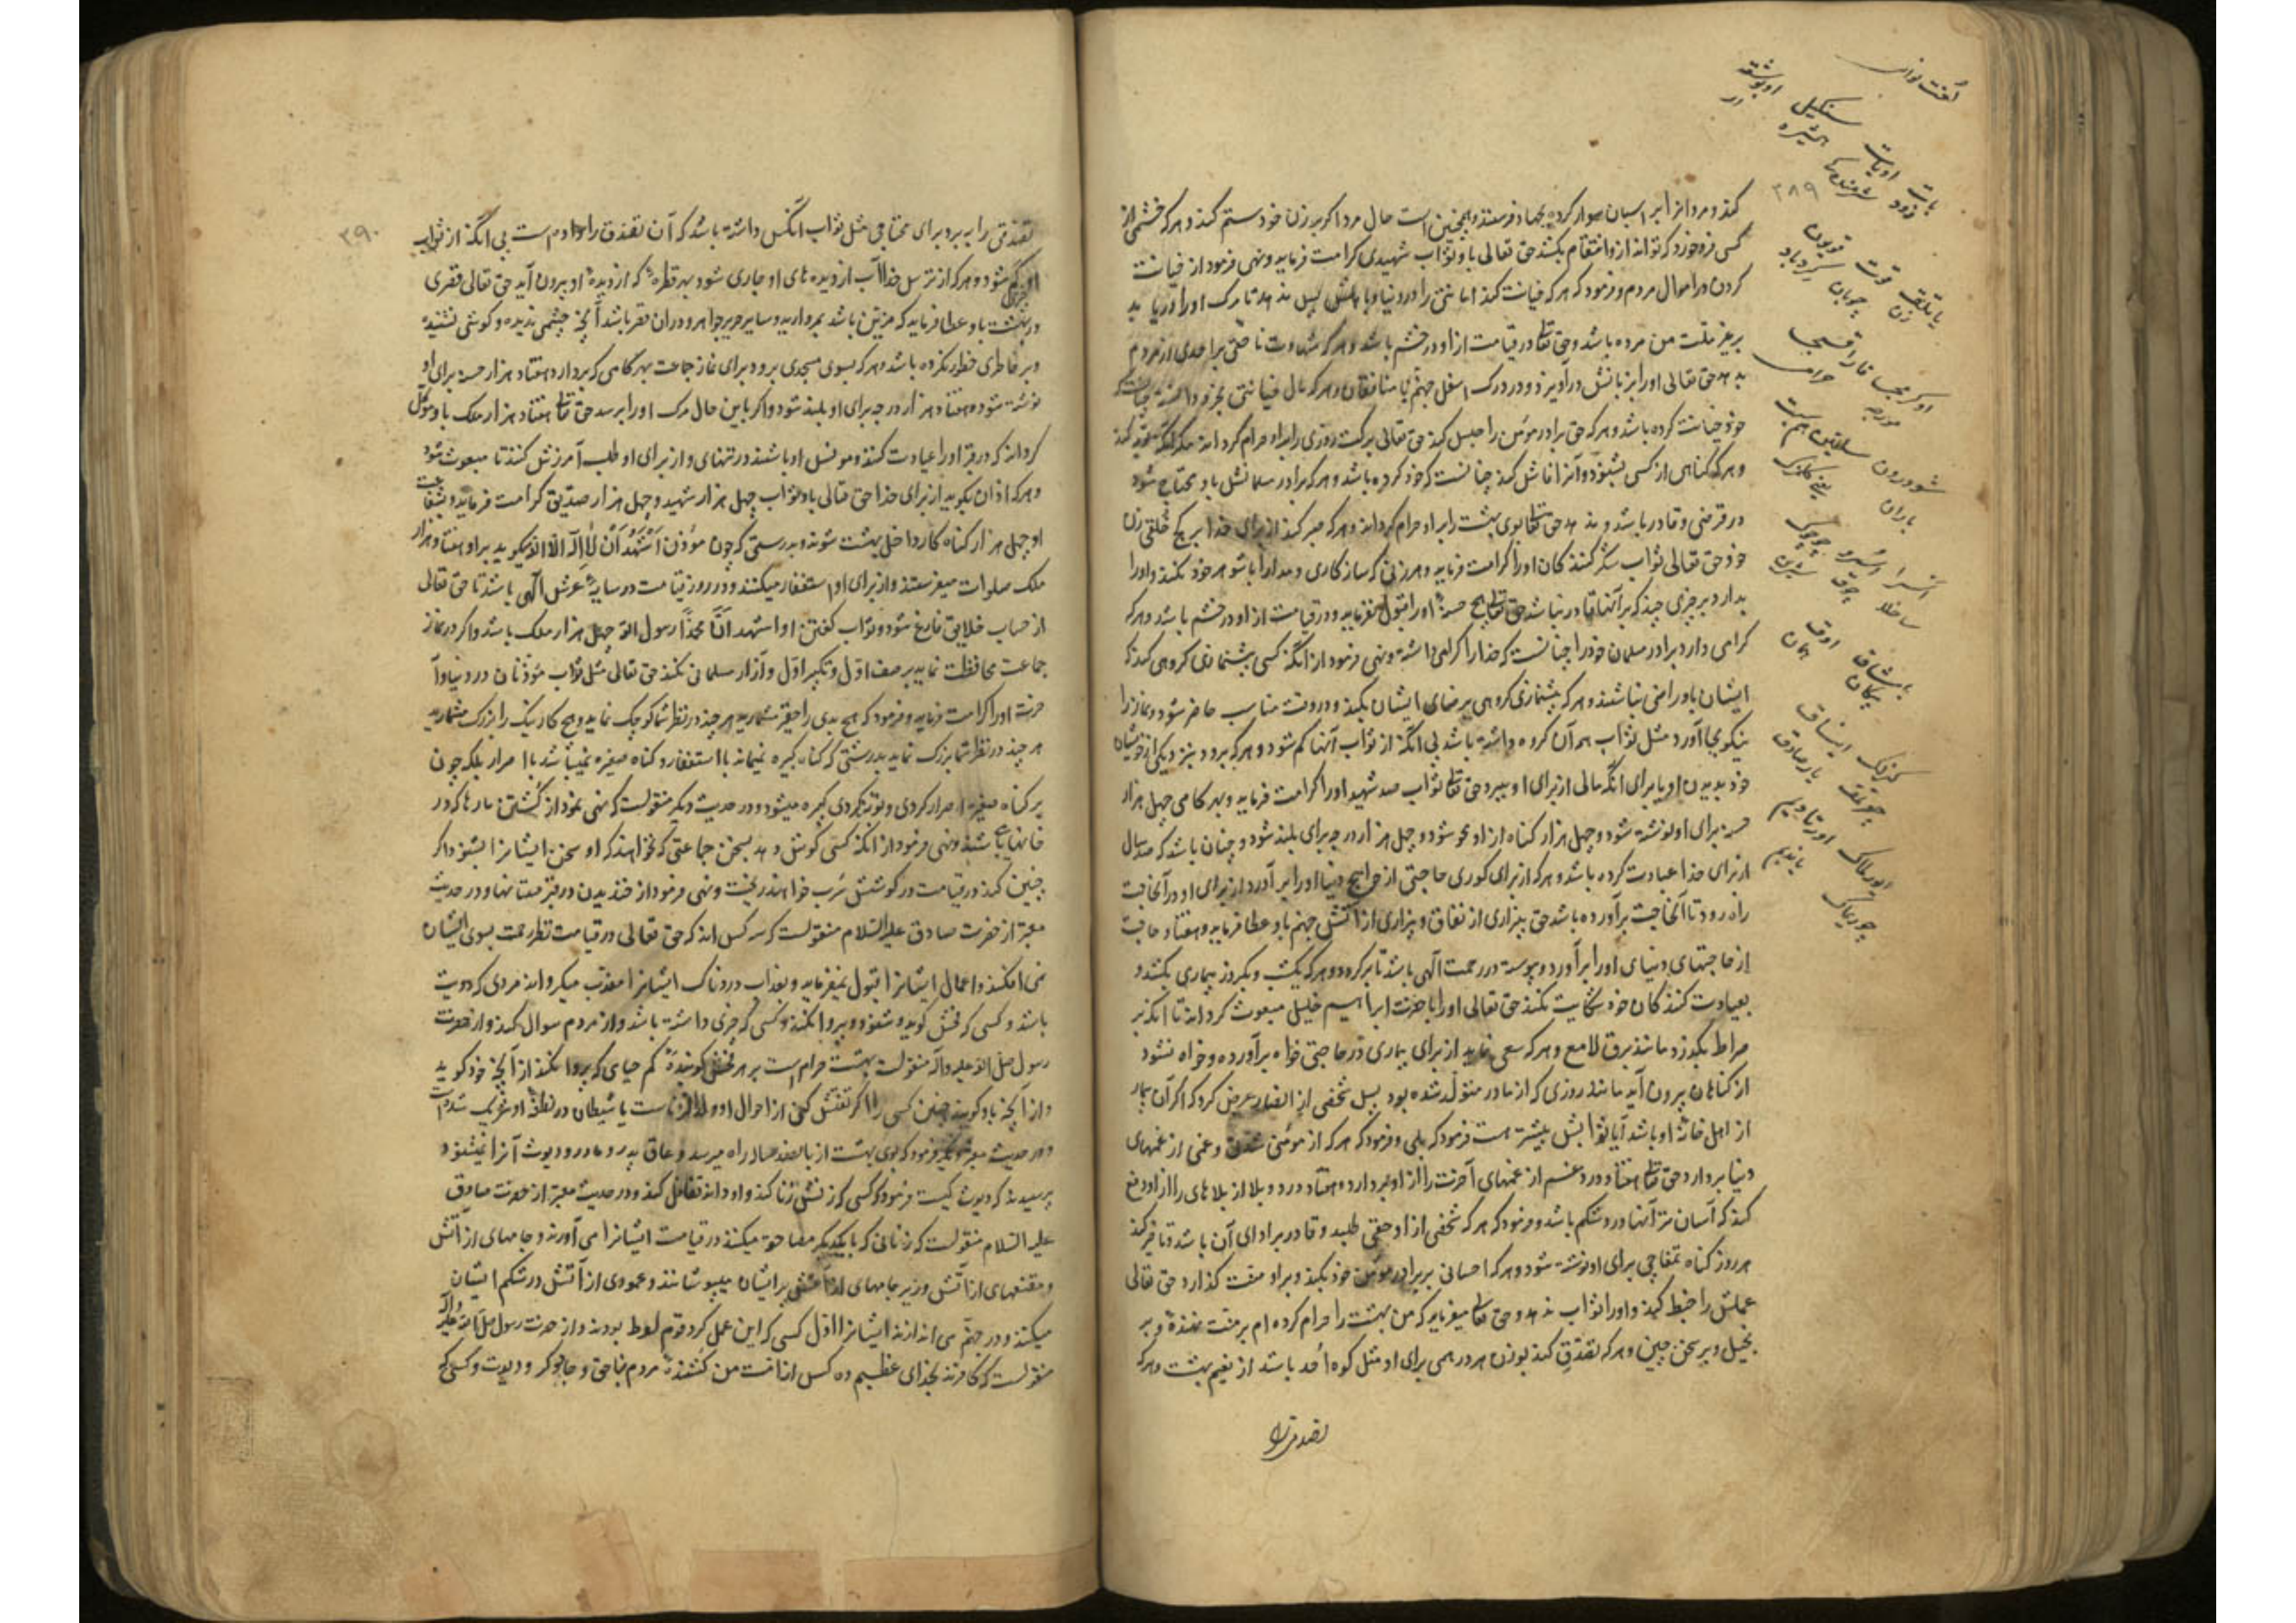 ۳۸۹
کند و مرد از ابر اسبان سوار کرده بجهاد فرستد و همچنین است حال مرد اگر بر زن خود ستم کند و هر که خشمی از
کسی فرو خورد که تواند از و انتقام بکشد حق تعالی باو ثواب شهیدی کرامت فرماید و نهی فرمود از خیانت
کردن در اموال مردم و فرمود که هر که خیانت کند امانتی را در دنیا و باهلش پس ندهد تا مرک او را دریابد
بر غیر ملت من مرده باشد و حق تعالی در قیامت از او در خشم باشد و هر که شهادت ناحقی بر احدی از مردم
بدهد حق تعالی او را بر زبانش در آویزد و در درک اسفل جهنم با منافقان و هر که مال خیانتی بخرد دانسته چنانست که
خود خیانت کرده باشد و هر که حق برادر مؤمن را حبس کند حق تعالی برکت روزی را بر او حرام گرداند مگر آنکه توبه کند
و هر که گناهی از کسی بشنود و آنرا فاش کند چنانست که خود کرده باشد و هر که برادر مسلمانش باو محتاج شود
در قرضی و قادر باشد و ندهد حق تعالی بوی بهشت را بر او حرام گرداند و هر که صبر کند از برای خدا بر کج خلقی زن
خود حق تعالی ثواب شکر کنندگان او را کرامت فرماید و هر زنی که سازکاری و مدارا با شوهر خود نکند و او را
بدارد بر چیزی چند که بر آنها قادر نباشد حق تعالی هیچ حسنه او را قبول نفرماید و در قیامت از او در خشم باشد و هر که
گرامی دارد برادر مسلمان خود را چنانست که خدا را گرامی داشته و نهی فرمود از آنکه کسی پیشنمازی گروهی کند که
ایشان باو راضی نباشند و هر که پیشنمازی گروهی برضای ایشان بکند و در وقت مناسب حاضر شود و نماز را
نیکو بجا آورد مثل ثواب همه آن گروه داشته باشد بی آنکه از ثواب آنها کم شود و هر که برود بنزدیکی از خویشان
خود بدیدن او یا برای آنکه مالی از برای او ببرد حق تعالی ثواب صد شهید او را کرامت فرماید و بهر کامی چهل هزار
حسنه برای او نوشته شود و چهل هزار گناه از او محو شود و چهل هزار درجه برای بلند شود و چنان باشد که صد سال
از برای خدا عبادت کرده باشد و هر که از برای کوری حاجتی از حوایج دنیا او را بر آورد از برای او در آنحاجت
راه رود تا آنحاجت برآورده باشد حق بیزاری از نفاق و بیزاری از آتش جهنم باو عطا فرماید و هفتاد حاجت
از حاجتهای دنیای او را برآورد و پیوسته در رحمت الهی باشد تا برگردد و هر که یکشب و یکروز بیماری بکشد و
بعیادت کنندکان خود شکایت نکند حق تعالی او را با حضرت ابراهیم خلیل مبعوث گرداند تا آنکه بر
صراط بگذرد مانند برق لامع و هر که سعی نماید از برای بیماری در حاجتی خواه برآورده و خواه نشود
از گناهان بیرون آید مانند روزی که از مادر متولد شده بود پس شخصی از انصار عرض کرد که اگر آن بیمار
از اهل خانه او باشد آیا ثوابش بیشتر هست فرمود که بلی و فرمود که هر که از مؤمنی شدتی و غمی از غمهای
دنیا بردارد حق تعالی هفتاد و دو غم از غمهای آخرت را از او بردارد و هفتاد و دو بلا از بلاهای را از او دفع
کند که آسان تر آنها درد شکم باشد و فرمود که هر که شخصی از او حقی طلبد و قادر بر ادای آن باشد و تأخیر کند
هر روز گناه تمغاچی برای او نوشته شود و هر که احسانی بر برادر مؤمن خود بکند و بر او منت گذارد حق تعالی
عملش را حبط کند و او را ثواب ندهد و حق تعالی میفرماید که من بهشت را حرام کرده ام بر منت نهنده و بر
بخیل و بر سخن چین و هر که تصدق کند بوزن هر درهمی برای او مثل کوه احد باشد از نعیم بهشت و هر که
تصدقی را
۳۹۰
تصدقی را به برد برای محتاجی مثل ثواب آنکس داشته باشد که آن تصدق را داده است بی آنکه از ثواب
او چیزی کم شود و هر که از ترسل خدا آب از دیده های او جاری شود بهر قطره که از دیده او بیرون آید حق تعالی قصری
در بهشت باو عطا فرماید که مزین باشد بمروارید و سایر جواهر و در آن قصر باشد آنچه چشمی ندیده و گوشی نشنیده
و بر خاطری خطور نکرده باشد و هر که بسوی مسجدی برود برای نماز جماعت بهر گامی که بردارد هفتاد هزار حسنه برای او
نوشته شود و هفتاد هزار درجه برای او بلند شود و اگر باین حال مرک او را برسد حق تعالی هفتاد هزار ملک باو موکل
گرداند که در قبر او را عیادت کنند و مونس او باشند در تنهائی و از برای او طلب آمرزش کنند تا مبعوث شود
و هر که اذان بگوید از برای خدا حق تعالی باو ثواب چهل هزار شهید و چهل هزار صدیق کرامت فرماید و بشفاعت
او چهل هزار گناه کار داخل بهشت شوند و بدرستی که چون مؤذن اَشْهَدُ اَنْ لا اِلهَ اِلَّا اللهُ میگوید بر او هفتاد هزار
ملک صلوات میفرستند و از برای او استغفار میکنند و در روز قیامت در سایه عرش الهی باشد تا حق تعالی
از حساب خلایق فارغ شود و ثواب گفتن او اشهد انّ محمّداً رسول الله چهل هزار ملک باشد و اگر در نماز
جماعت محافظت نماید بر صف اوّل و تکبیر اوّل و آزار مسلمانی نکند حق تعالی مثل ثواب مؤذنان در دنیا و آ
خرت او را کرامت فرماید و فرمود که هیچ بدی را حقیر مشمارید هر چند در نظر شما کوچک نماید و هیچ کار نیک را بزرک مشمارید
هر چند در نظر شما بزرک نماید بدرستی که گناه کبیره نمیماند با استغفار و گناه صغیره نمیباشد با اصرار بلکه چون
بر گناه صغیره اصرار کردی و توبه نکردی کبیره میشود و در حدیث دیگر منقولست که نهی نمود از کشتن مارها که در
خانها باشند و نهی فرمود از آنکه کسی گوش دهد بسخن جماعتی که نخواهند که او سخن ایشانرا بشنود و اگر
چنین کند در قیامت در گوشش سرب خواهند ریخت و نهی فرمود از خندیدن در قبرستانها و در حدیث
معتبر از حضرت صادق علیه السلام منقولست که سه کس اند که حق تعالی در قیامت نظر رحمت بسوی ایشان
نمی افکند و اعمال ایشانرا قبول نمیفرماید و بعذاب دردناک ایشانرا معذب میگرداند مردی که دیوث
باشد و کسی که فحش گوید و شنود و پروا نکند و کسی که چیزی داشته باشد و از مردم سوال کند و از حضرت
رسول صلی الله علیه و آله منقولست بهشت حرام است بر هر فحش گوینده کم حیائی که پروا نکند از آنچه خود گوید
و از آنچه باو گویند چنین کسی را اگر تفتیش کنی از احوال او ولد الزناست یا شیطان در نطفه او شریک شده است
و در حدیث معتبر دیگر فرمود که بوی بهشت از پانصد ساله راه میرسد و عاق پدر و مادر و دیوث آنرا نمیشنود
پرسیدند که دیوث کیست فرمود که کسی که زنش زنا کند و او داند تغافل کند و در حدیث معتبر از حضرت صادق
علیه السلام منقولست که زنانی که با یکدیگر مساحقه میکنند در قیامت ایشانرا می آورند و جامهای از آتش
و مقنعهای از آتش و زیر جامهای از آتش بر ایشان میپوشانند و عمودی از آتش در شکم ایشان
میکنند و در جهنم می اندازند ایشانرا اوّل کسی که این عمل کرد قوم لوط بودند و از حضرت رسول صلی الله علیه و آله
منقولست که کافرند بخدای عظیم ده کس از امت من کشنده مردم بناحق و جادوکر و دیوث و کسی که